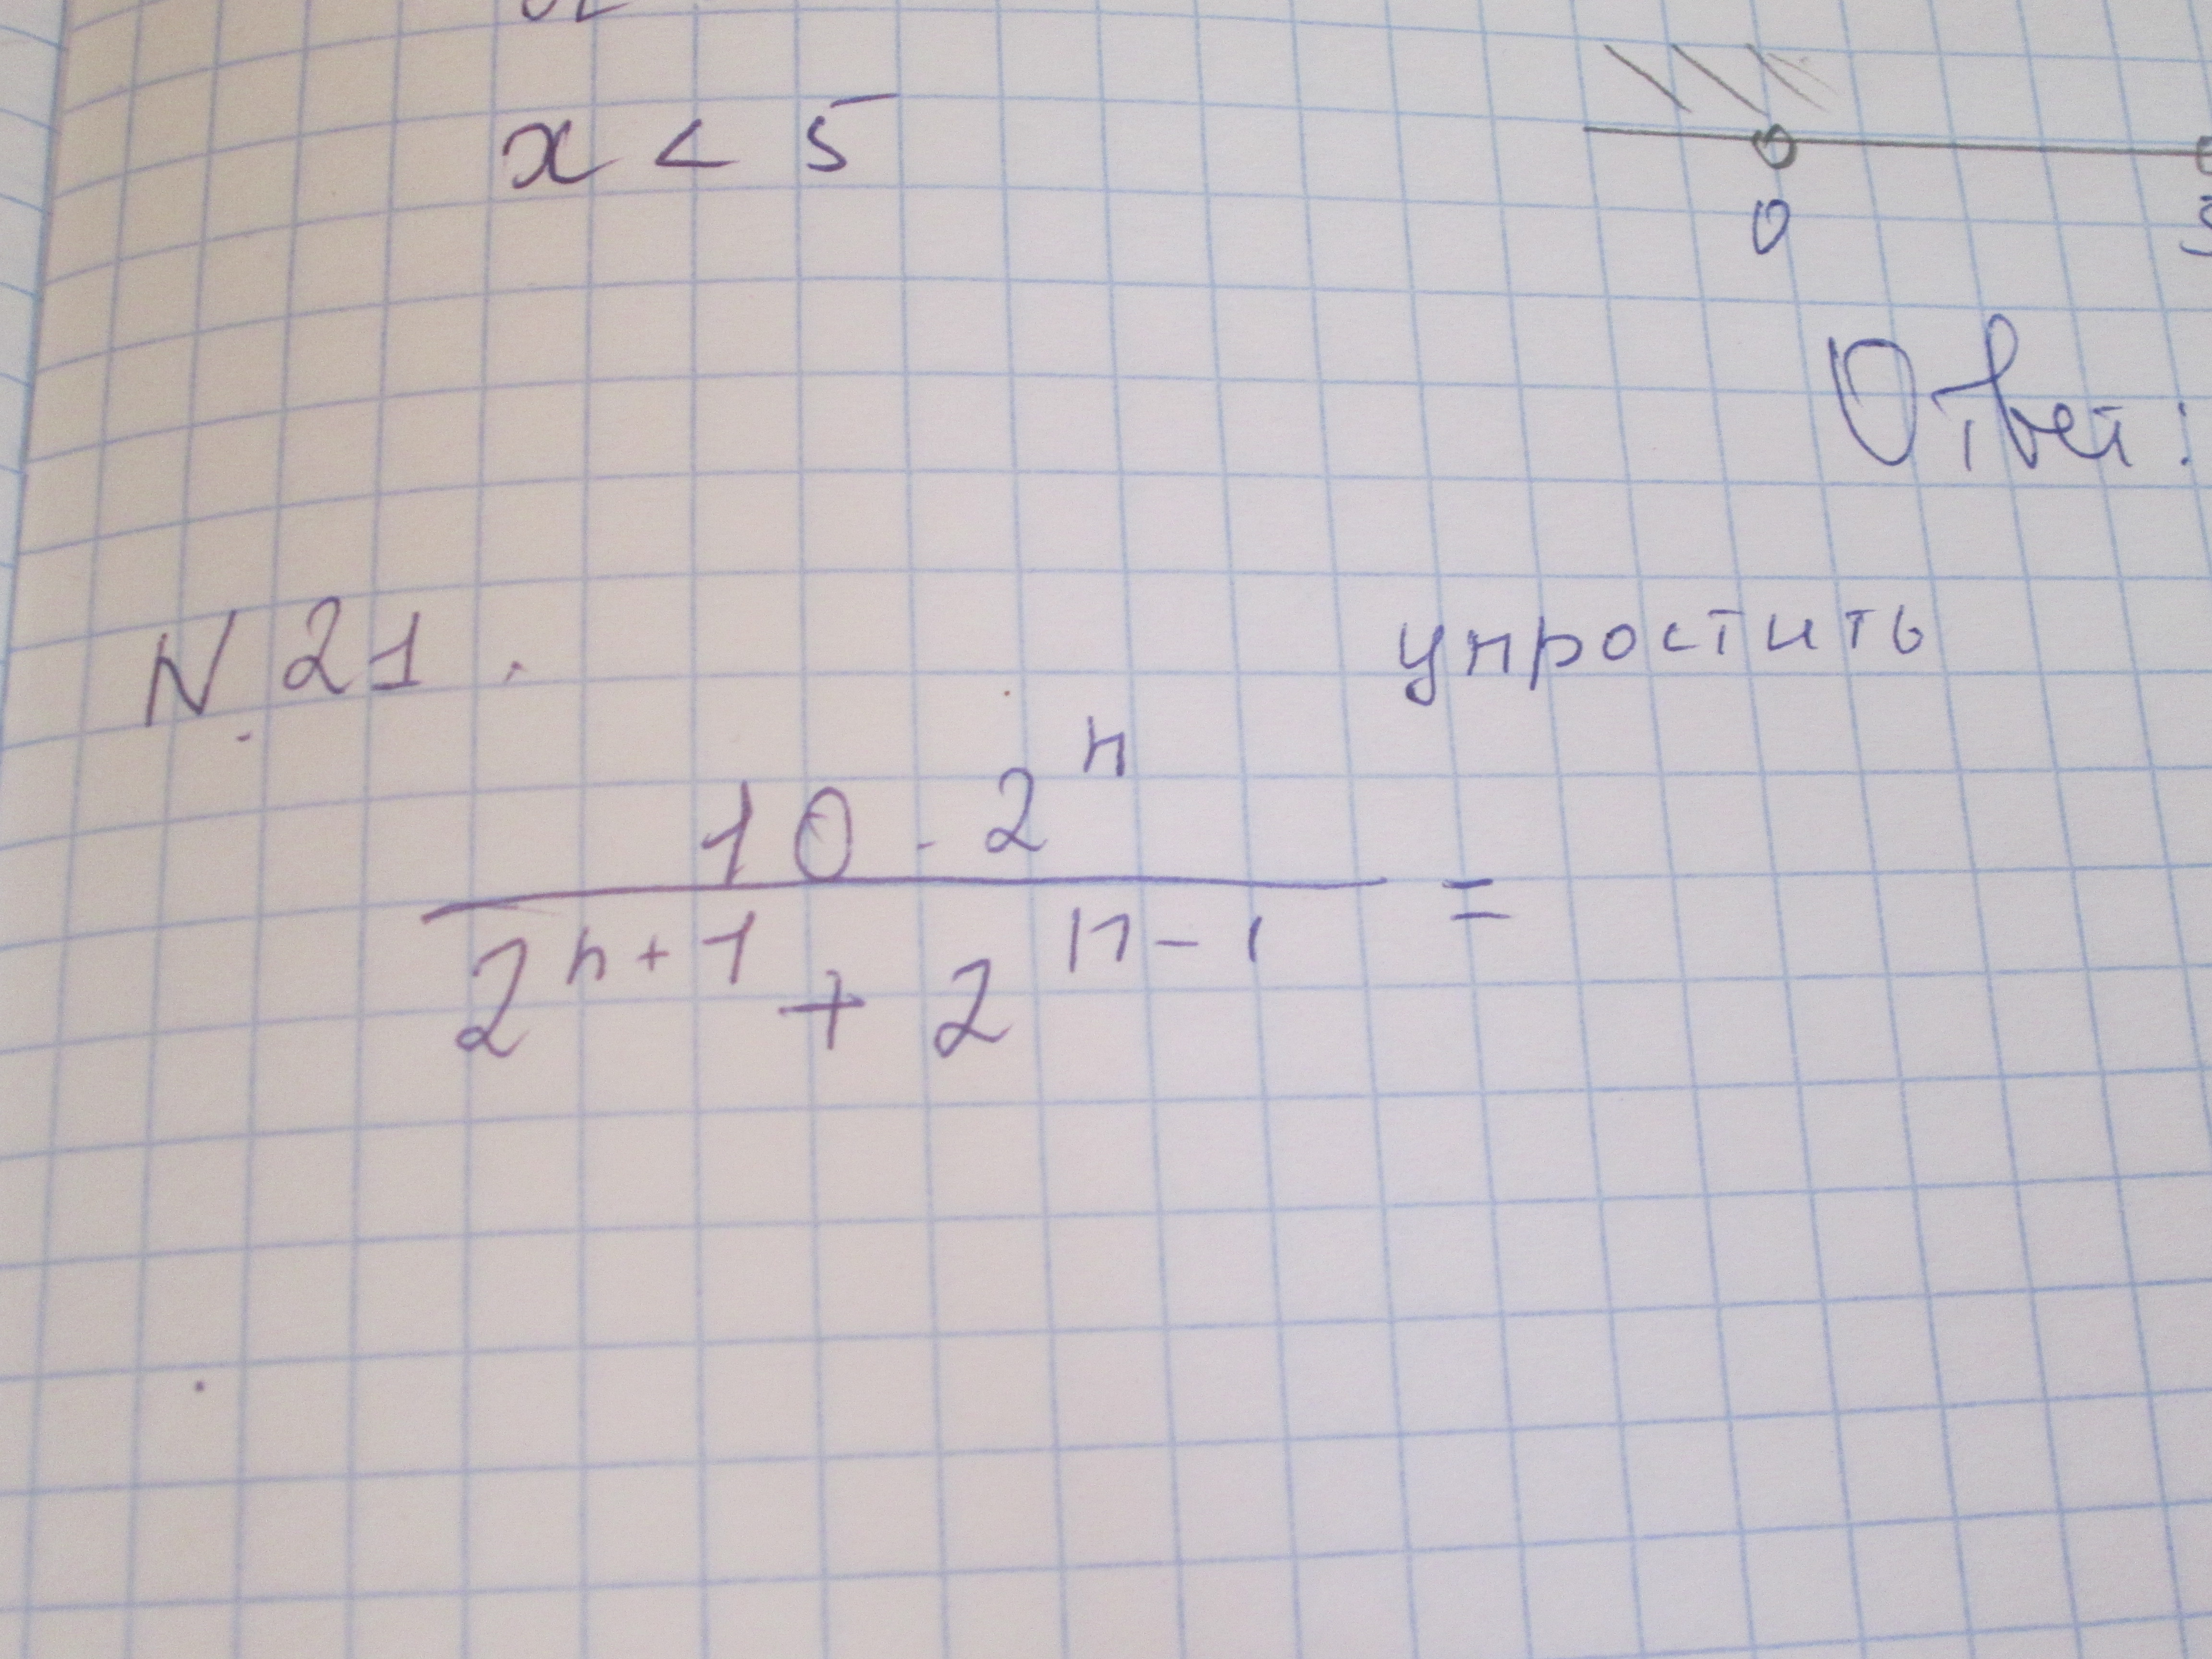 x < 5
0
Ответ:
N 21.
упростить
10 · 2^n
2^{n+1} + 2^{n-1} =